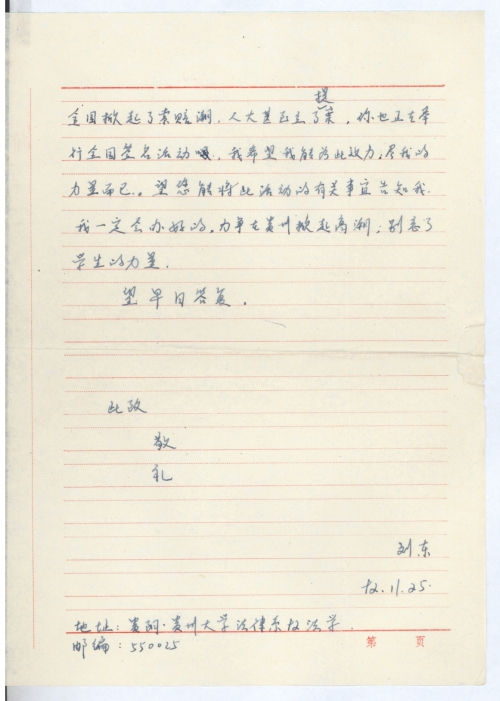 提
全国掀起了索赔潮，人大甚至立了案，你也正在举
行全国签名活动，我希望我能为此效力，尽我的
力量而已。望您能将此活动的有关事宜告知我.
我一定会办好的，力争在贵州掀起高潮；别忘了
学生的力量.
望早日答复.
此致
敬
礼
刘东
92.11.25.
地址：贵阳·贵州大学法律系 法学.
邮编：550025
第 页